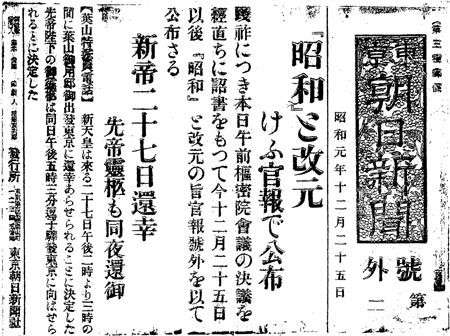 東京朝日新聞
號外
第二
昭和元年十二月二十五日
『昭和』と改元
けふ官報で公布
踐祚につき本日午前樞密院會議の決議を
經直ちに詔書をもつて今十二月二十五日
以後『昭和』と改元の旨官報號外を以て
公布さる
新帝二十七日還幸
先帝靈柩も同夜還御
【葉山特派員電話】新天皇は來る二十七日午後二時より三時の
間に葉山御用邸御出發東京に還幸あらせられることに決定した
先帝陛下の御靈柩は同日午後五時三分逗子驛發東京に向はせら
れることに決定した
發行所
東京朝日新聞社